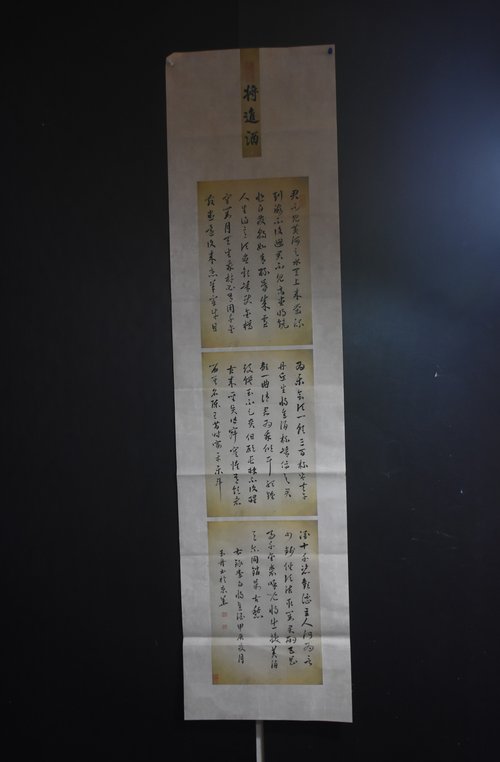 將進酒
君不見黄河之水天上来奔流
到海不復迴君不見高堂明镜
悲白发朝如青丝暮成雪
人生得意须尽歡莫使金樽
空對月天生我材必有用千金
散盡還復来烹羊宰牛且
为樂會须一飲三百杯岑夫子
丹丘生將進酒杯莫停與君
歌一曲請君为我傾耳聽鐘
鼓饌玉不足貴但願長醉不復醒
古来聖賢皆寂寞惟有飲者
留其名陳王昔時宴平樂斗
酒十千恣歡謔主人何为言
少錢徑须沽取對君酌五花
馬千金裘呼兒將出换美酒
與尔同銷萬古愁
李白將進酒 夏月
書於京華